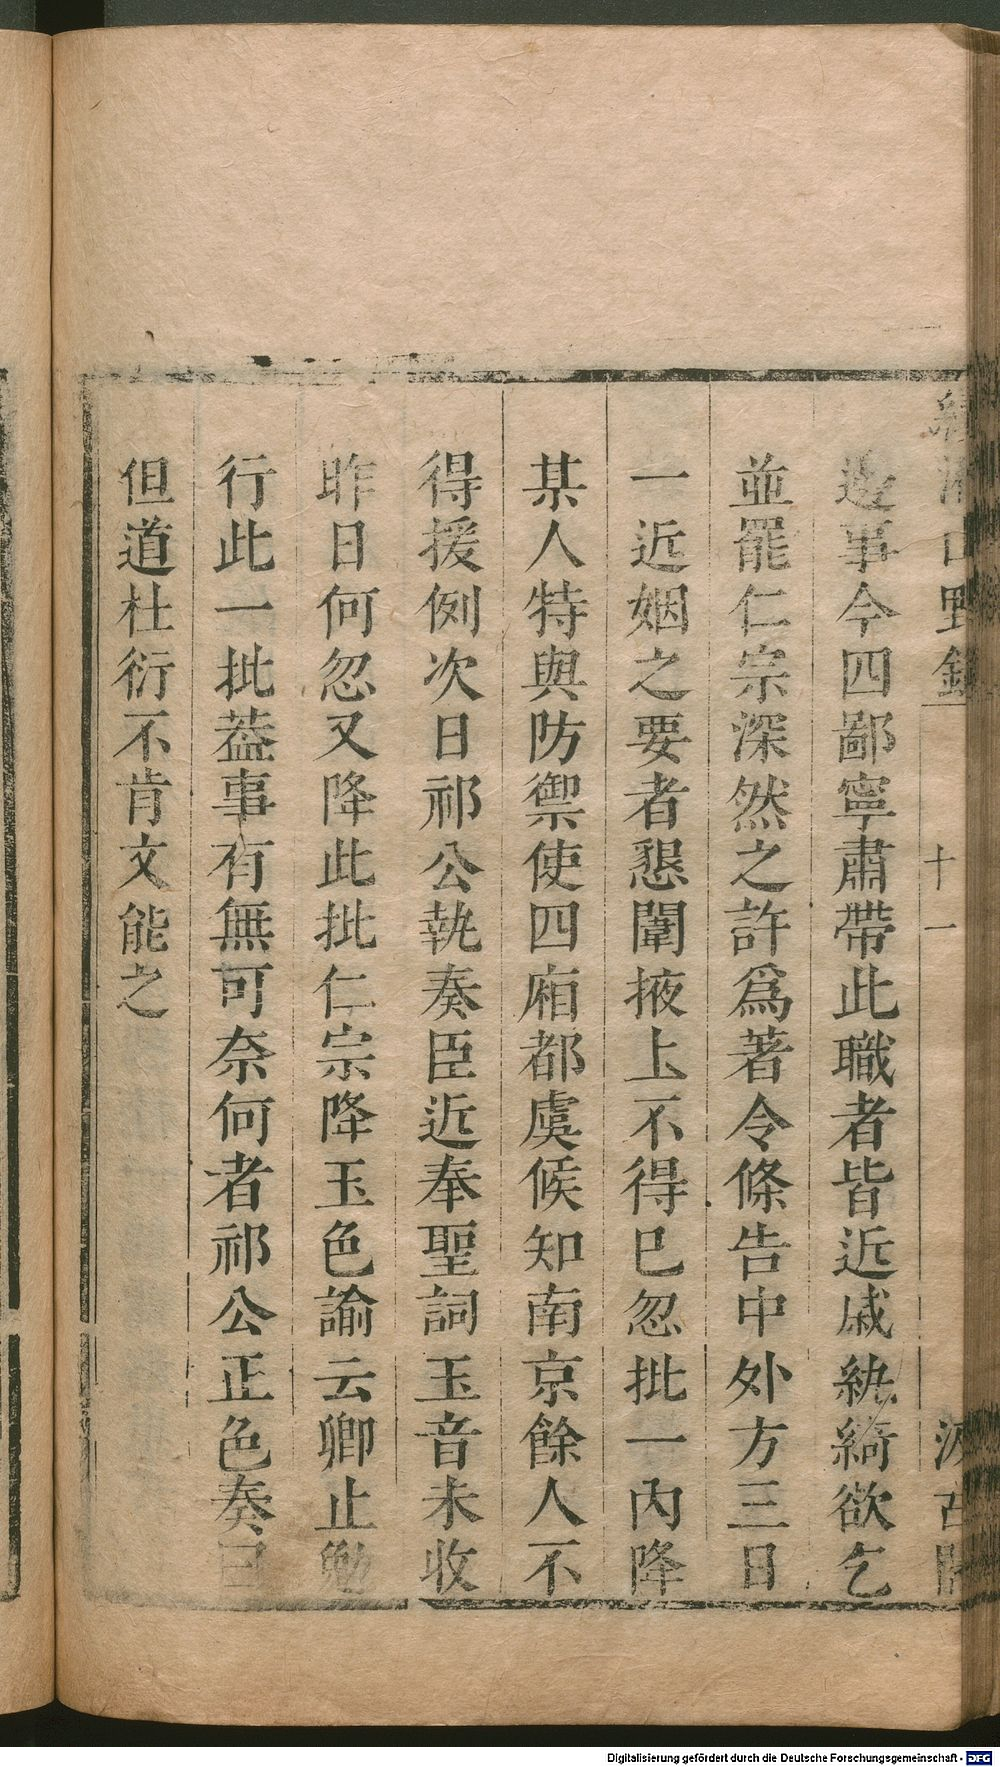 續湘山野錄 十一 汲古閣
邊事今四鄙寧肅帶此職者皆近戚紈綺欲乞
並罷仁宗深然之許爲著令條告中外方三日
一近姻之要者懇闈掖上不得已忽批一內降
某人特與防禦使四廂都虞候知南京餘人不
得援例次日祁公執奏臣近奉聖詞玉音未收
昨日何忽又降此批仁宗降玉色諭云卿止勉
行此一批葢事有無可奈何者祁公正色奏曰
但道杜衍不肯文能之
Digitalisierung gefördert durch die Deutsche Forschungsgemeinschaft - DFG